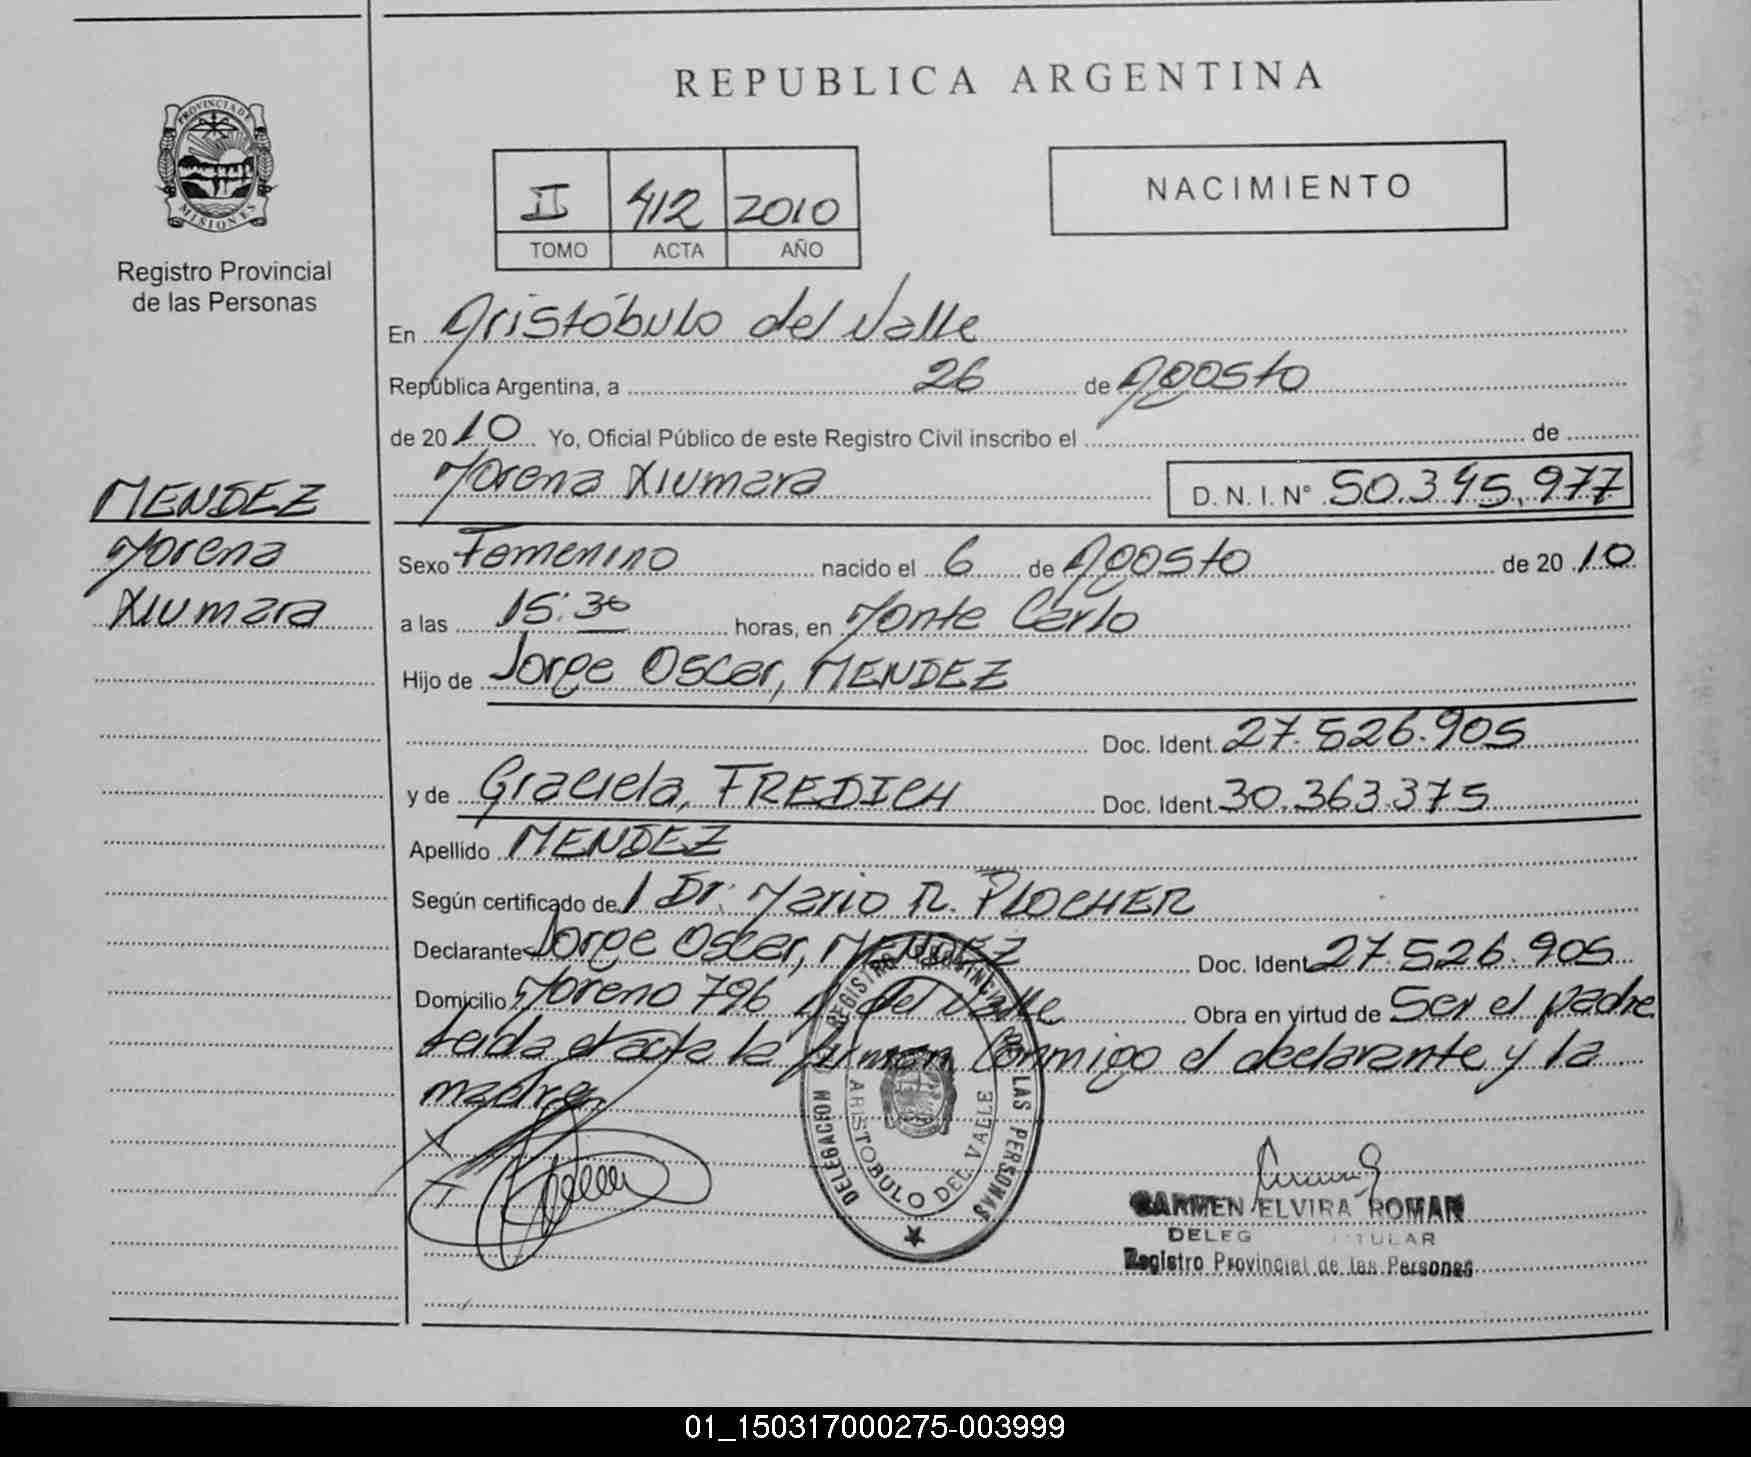 REPUBLICA ARGENTINA
PROVINCIA DE
MISIONES
Registro Provincial
de las Personas
II 412 2010
TOMO ACTA AÑO
NACIMIENTO
En Aristóbulo del Valle
República Argentina, a 26 de Agosto
de 2010 Yo, Oficial Público de este Registro Civil inscribo el de
Morena Xiumara D.N.I. N° 50.345.977
MENDEZ
Morena
Xiumara
Sexo Femenino nacido el 6 de Agosto de 2010
a las 15:30 horas, en Monte Carlo
Hijo de Jorge Oscar, MENDEZ
Doc. Ident. 27.526.905
y de Graciela, FREDICH Doc. Ident. 30.363.375
Apellido MENDEZ
Según certificado de l Dr. Mario R. PLOCHER
Declarante Jorge Oscar, MENDEZ Doc. Ident. 27.526.905
Domicilio Moreno 796 A. del Valle Obra en virtud de Ser el padre
Leida el acta la firman Conmigo el declarante y la
madre
DELEGACION REGISTRO PROVINCIAL DE LAS PERSONAS
ARISTOBULO DEL VALLE
CARMEN ELVIRA ROMAN
DELEG TULAR
Registro Provincial de las Personas
01_150317000275-003999